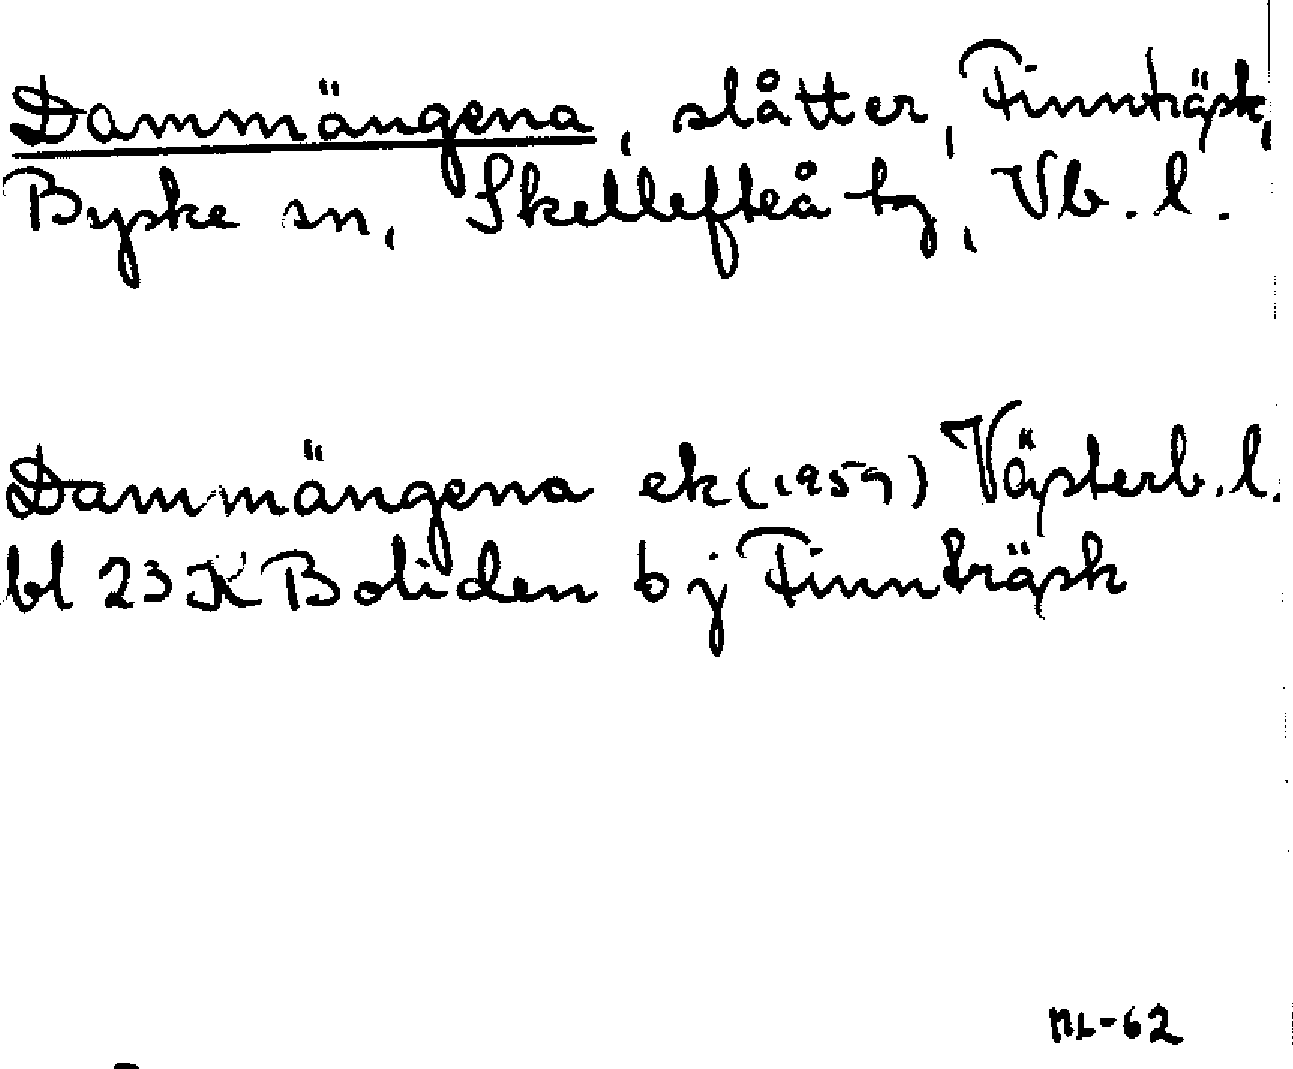 Dammängena, slåtter, Finnträsk,
Byske sn, Skellefteå tg, Vb. l.
Dammängena ek (1959) Västerb. l.
bl 23 K Boliden 6 j Finnträsk
NL-62